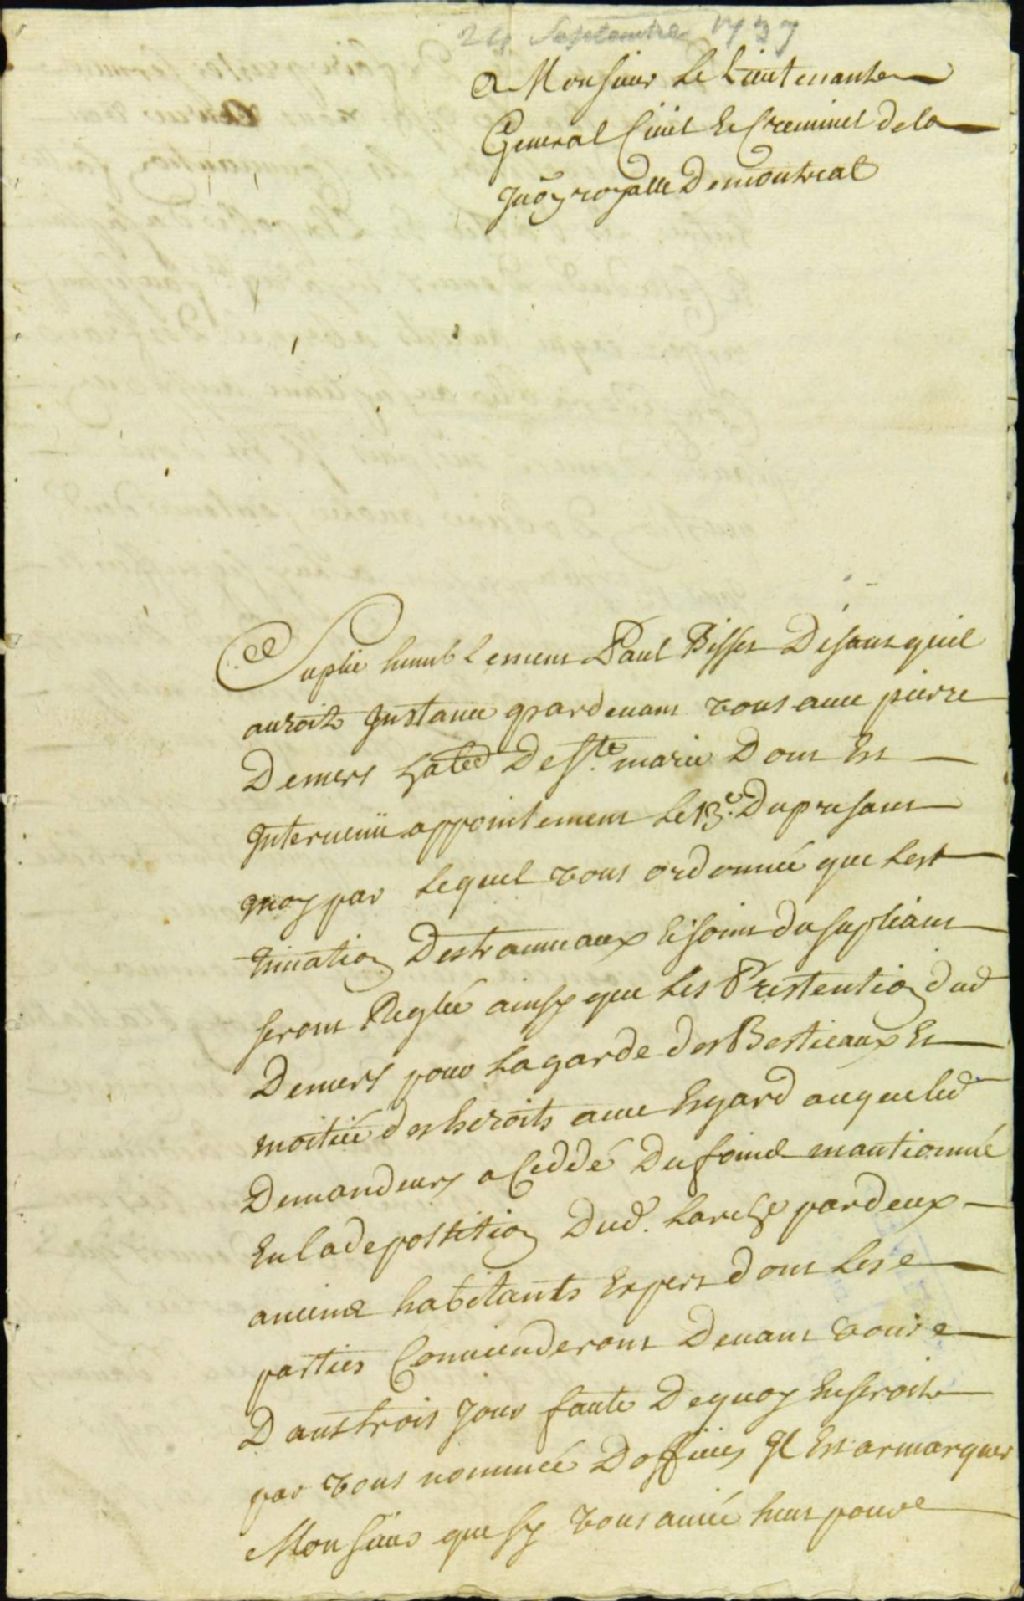 24 Septembre 1737
A Monsieur Le Lieutenant
General Civil Et Criminel de la
Juõn royalle De montreal
Suplie humblement Paul Bisset Disant quil
auroit Instance pardevant vous avec pierre
Demers habt De Ste marie Dont Est
Intervenüe appointement le 13e Du present
moy par lequel vous ordonnée que lest
timation Des travaux Et soins du supliant
seront Reglée ainsy que les Prestention dud
Demers pour la garde des Bestieaux Et
moitiée des Esroits avec Esgard a ce que led
Demandeurs a Ceddé Du foine mantionné
En la depostition Dud. Larche par deux
anciens habitants Expert dont les
parties Conviendront Devant vous
Dans trois Jour faute De quoy En seroit
par vous nommée Dofficees Il Est a remarquer
Monsieur que sy vous aviée Eut pour